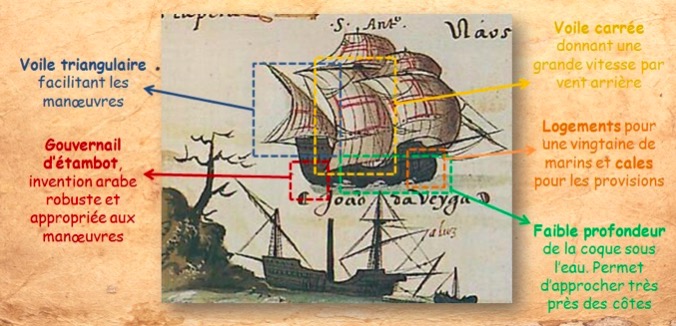 .S. Antº.
Náos
Voile triangulaire
facilitant les
manœuvres
Gouvernail
d'étambot,
invention arabe
robuste et
appropriée aux
manœuvres
João da Veyga
Voile carrée
donnant une
grande vitesse par
vent arrière
Logements pour
une vingtaine de
marins et cales
pour les provisions
Faible profondeur
de la coque sous
l'eau. Permet
d'approcher très
près des côtes